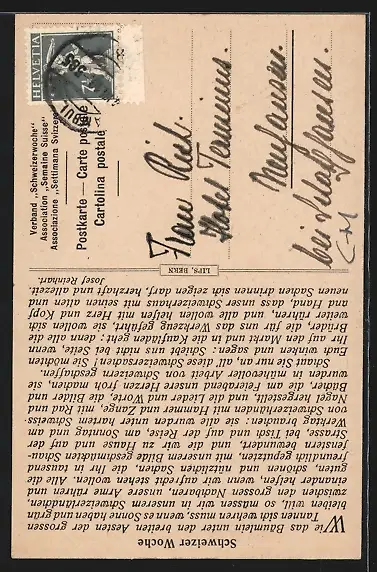 HELVETIA
Verband „Schweizerwoche"
Association „Semaine Suisse"
Associazione „Settimana Svizzera"
Postkarte — Carte postale
Cartolina postale
Frau
Hotel
Neuhausen
bei Schaffhausen
LIPS, BERN
Schweizer Woche
Wie das Bäumlein unter den breiten Aesten der grossen
Tannen sich wehren muss, wenn es Sonne haben und grün
bleiben will, so müssen wir in unserem Schweizerländchen,
zwischen den grossen Nachbaren, unsere Arme rühren und
einander helfen, wenn wir aufrecht stehen wollen. Alle die
guten, schönen und nützlichen Sachen, die Ihr in tausend
freundlich geputzten, mit unserem Bilde geschmückten Schau-
fenstern bewundert, und die wir zu Hause und auf der
Strasse, bei Tisch und auf der Reise, an Sonntag und am
Werktag brauchen: sie alle wurden unter hartem Schweiss,
von Schweizerhänden mit Hammer und Zange, mit Rad und
Nagel hergestellt, und die Lieder und Worte, die Bilder und
Bücher, die am Feierabend unsere Herzen froh machen, sie
wurden in mühevoller Arbeit von Schweizern geschaffen.
Schaut Sie nur an, all' diese Schweizersachen! Sie möchten
Euch winken und sagen: Schiebt uns nicht bei Seite, wenn
Ihr auf den Markt und in die Kaufläden geht; denn alle die
Brüder, die für uns das Werkzeug geführt, sie wollen sich
weiter rühren, und alle wollen helfen mit Herz und Kopf
und Hand, dass unser Schweizerhaus mit seinen alten und
neuen Sachen drinnen sich zeigen darf, harzhaft und allezeit.
Josef Reinhart.